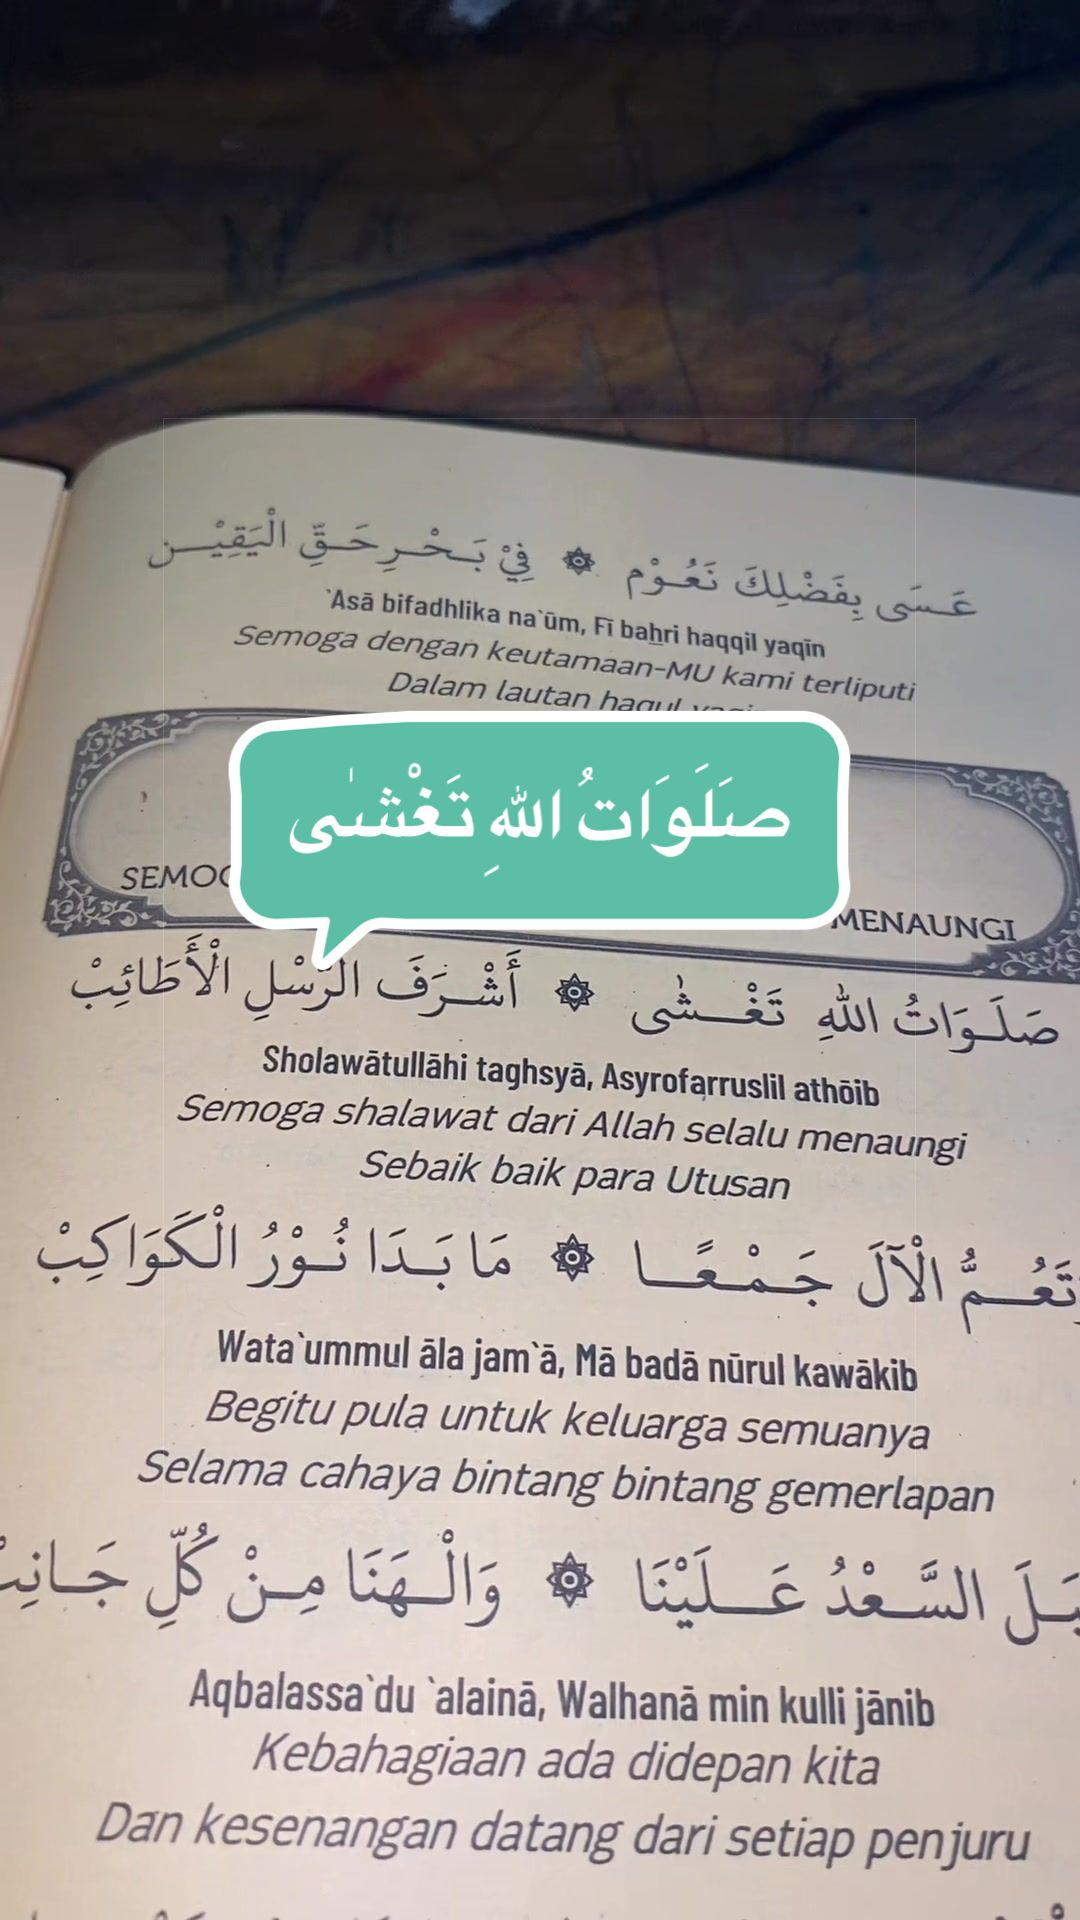 عَسَى بِفَضْلِكَ نَعُوْم ۞ فِيْ بَحْرِ حَقِّ الْيَقِيْن
`Asā bifadhlika na`ūm, Fī bahri haqqil yaqīn
Semoga dengan keutamaan-MU kami terliputi
Dalam lautan haqul
صَلَوَاتُ اللهِ تَغْشٰى
MENAUNGI
صَلَوَاتُ اللهِ تَغْشٰى ۞ أَشْرَفَ الرُّسْلِ الْأَطَائِبْ
Sholawātullāhi taghsyā, Asyrofarruslil athōib
Semoga shalawat dari Allah selalu menaungi
Sebaik baik para Utusan
تَعُمُّ الْآلَ جَمْعًا ۞ مَا بَدَا نُوْرُ الْكَوَاكِبْ
Wata`ummul āla jam`ā, Mā badā nūrul kawākib
Begitu pula untuk keluarga semuanya
Selama cahaya bintang bintang gemerlapan
السَّعْدُ عَلَيْنَا ۞ وَالْهَنَا مِنْ كُلِّ
Aqbalassa`du `alainā, Walhanā min kulli jānib
Kebahagiaan ada didepan kita
Dan kesenangan datang dari setiap penjuru